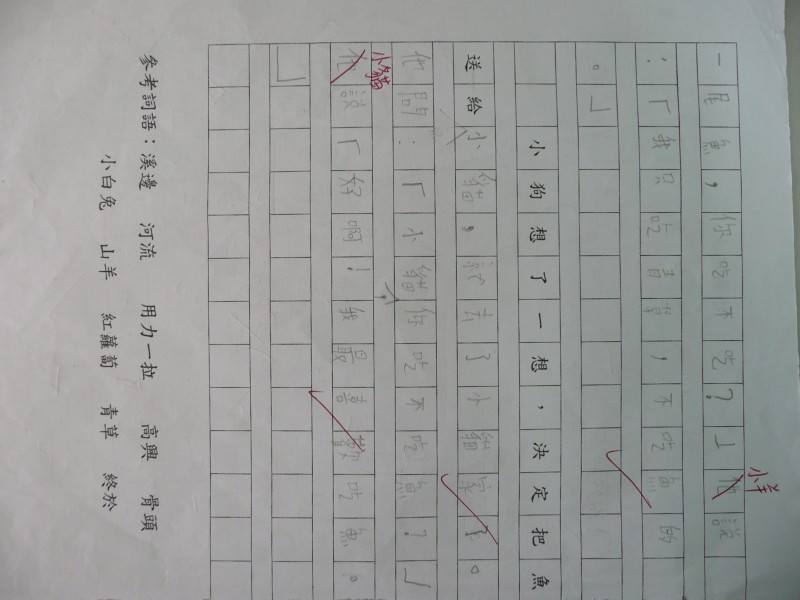 一尾魚，你吃不吃？」他說
小羊
：「我只吃青草，不吃魚的
。」
小狗想了一想，決定把魚
送給小貓，就去了小貓家了。
他問：「小貓你吃不吃魚？」
小貓
他說「好啊！我最喜歡吃魚。
」
參考詞語：溪邊 河流 用力一拉 高興 骨頭
小白兔 山羊 紅蘿蔔 青草 終於